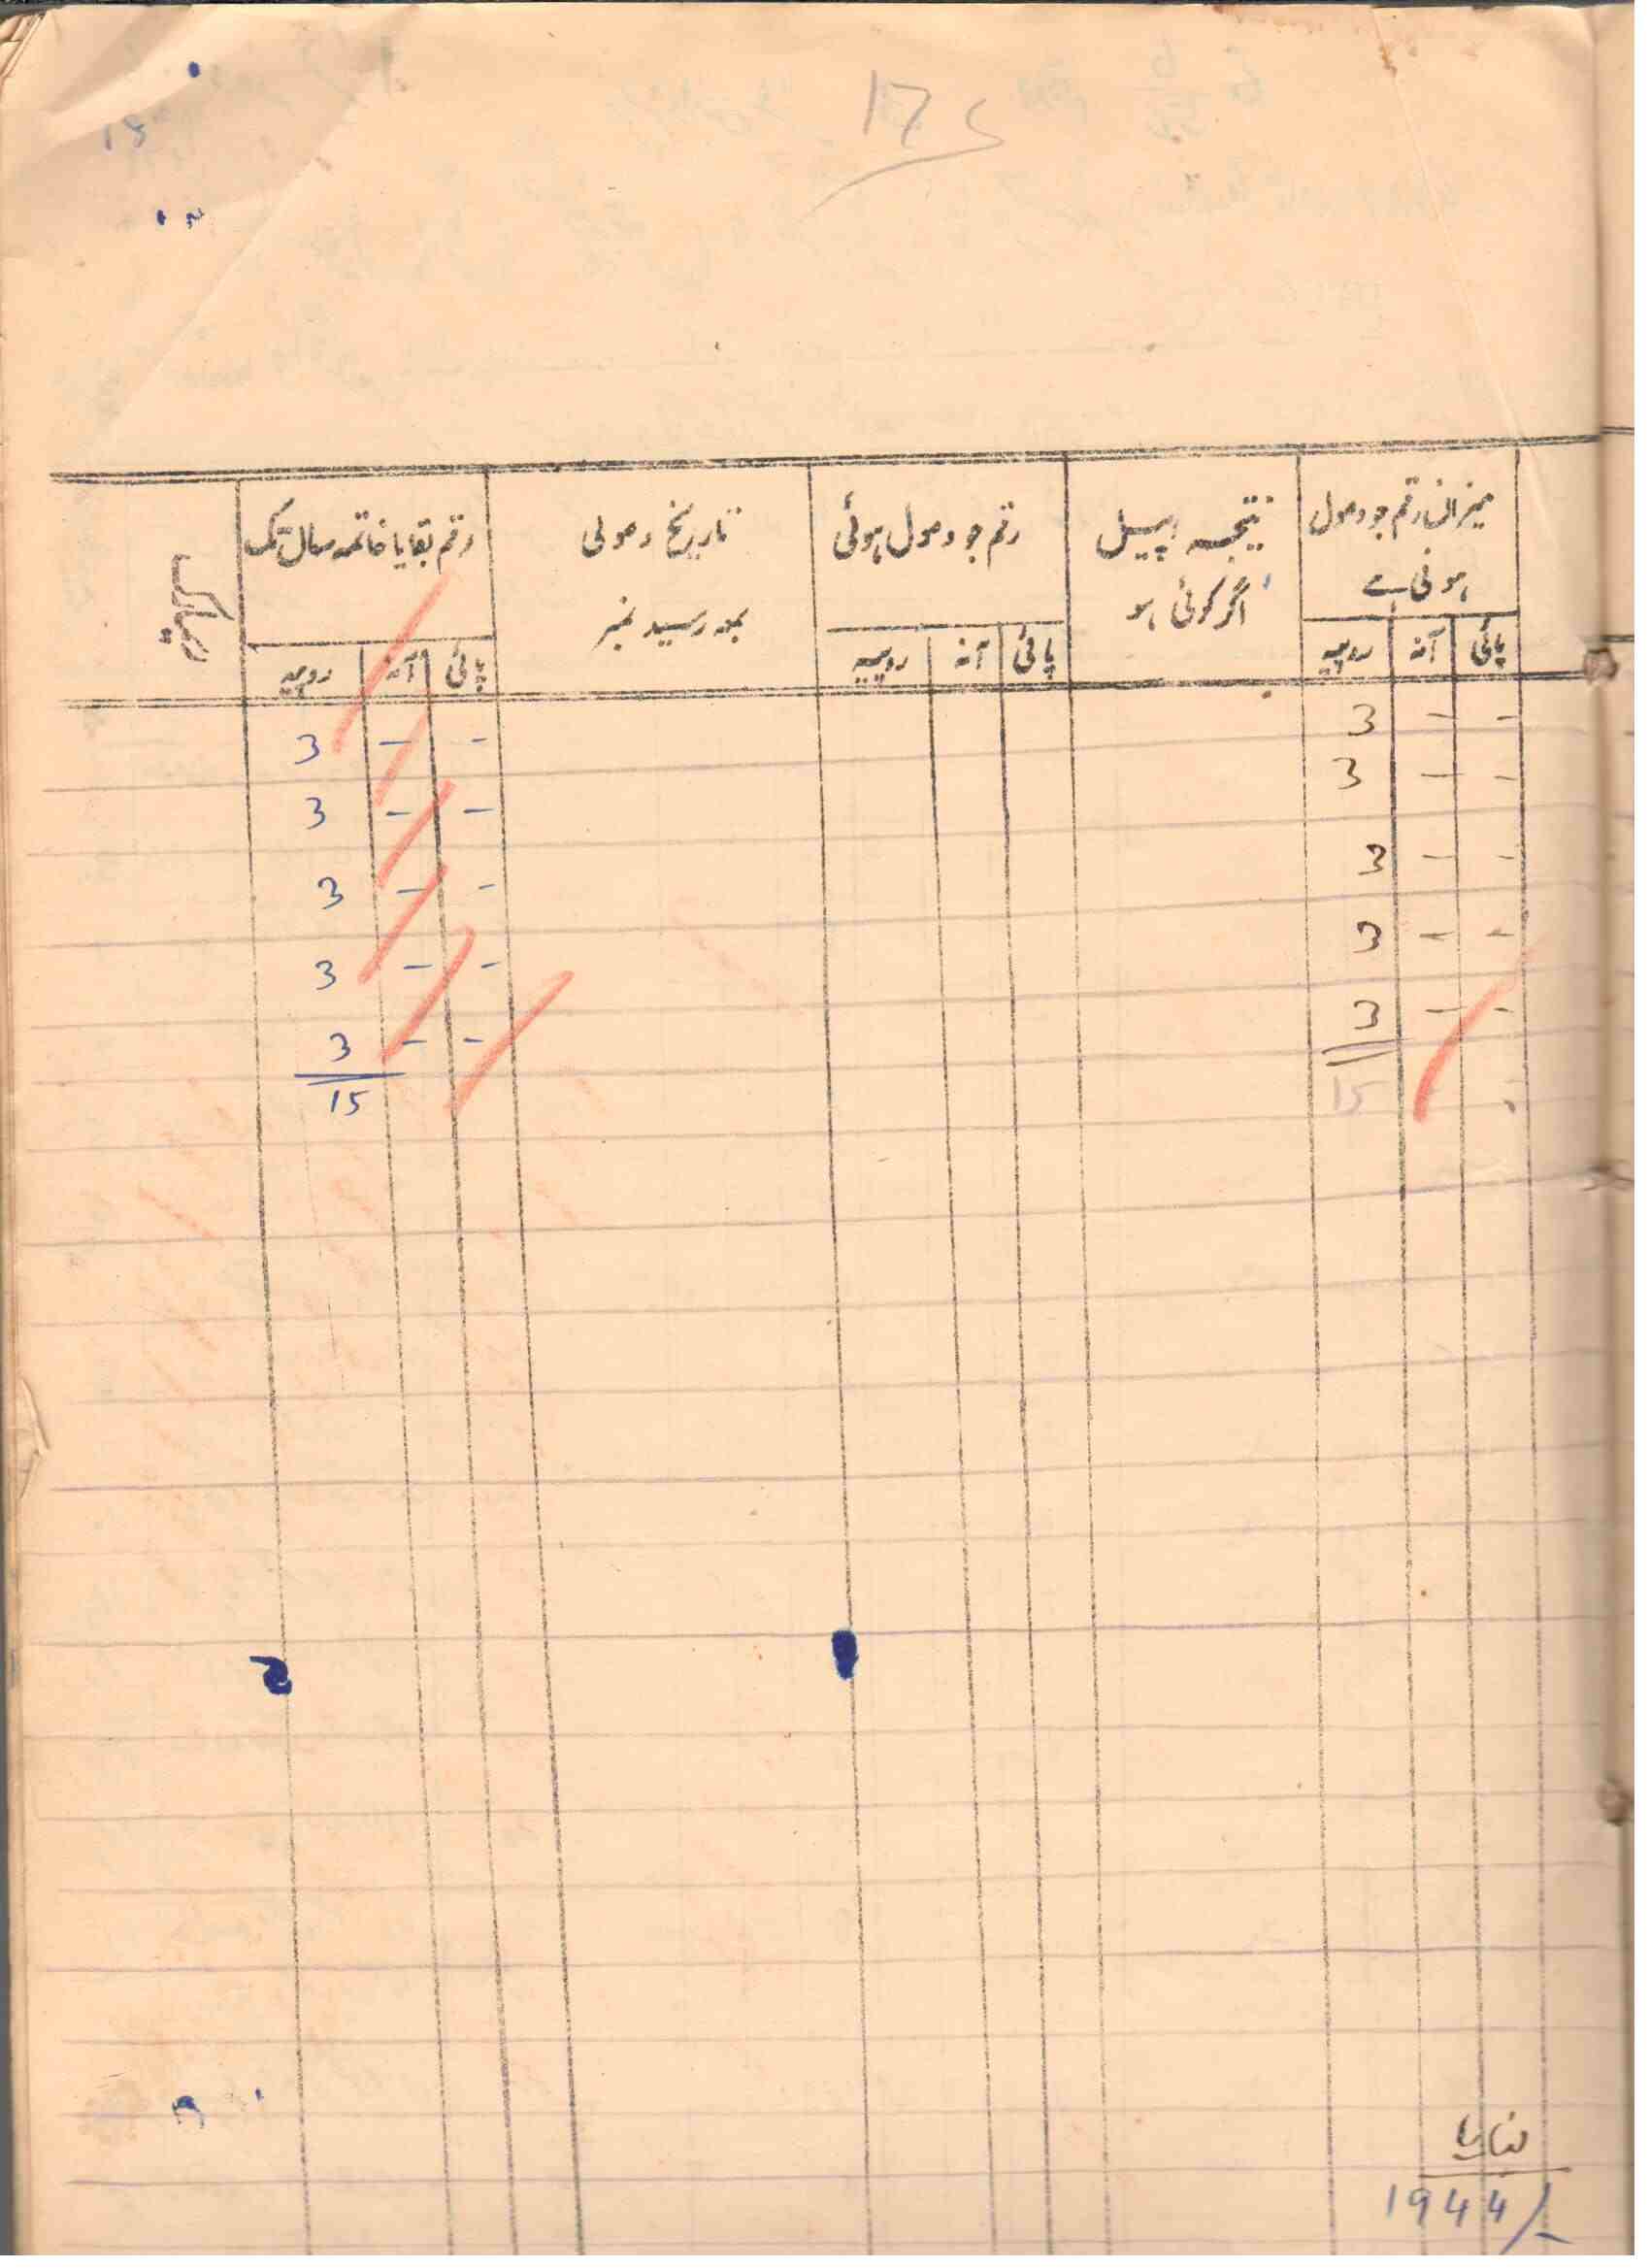 175
میزان رقم جو وصول
ہونی ہے
نتیجہ اپیل
اگر کوئی ہو
رقم جو وصول ہوئی
تاریخ وصولی
بمعہ رسید نمبر
رقم بقایا خاتمہ سال تک
پائی آنہ روپیہ
پائی آنہ روپیہ
پائی آنہ روپیہ
- - 3 - - 3
- - 3 - - 3
- - 3 - - 3
- - 3 - - 3
- - 3 - - 3
15 15
بقایا
1944/